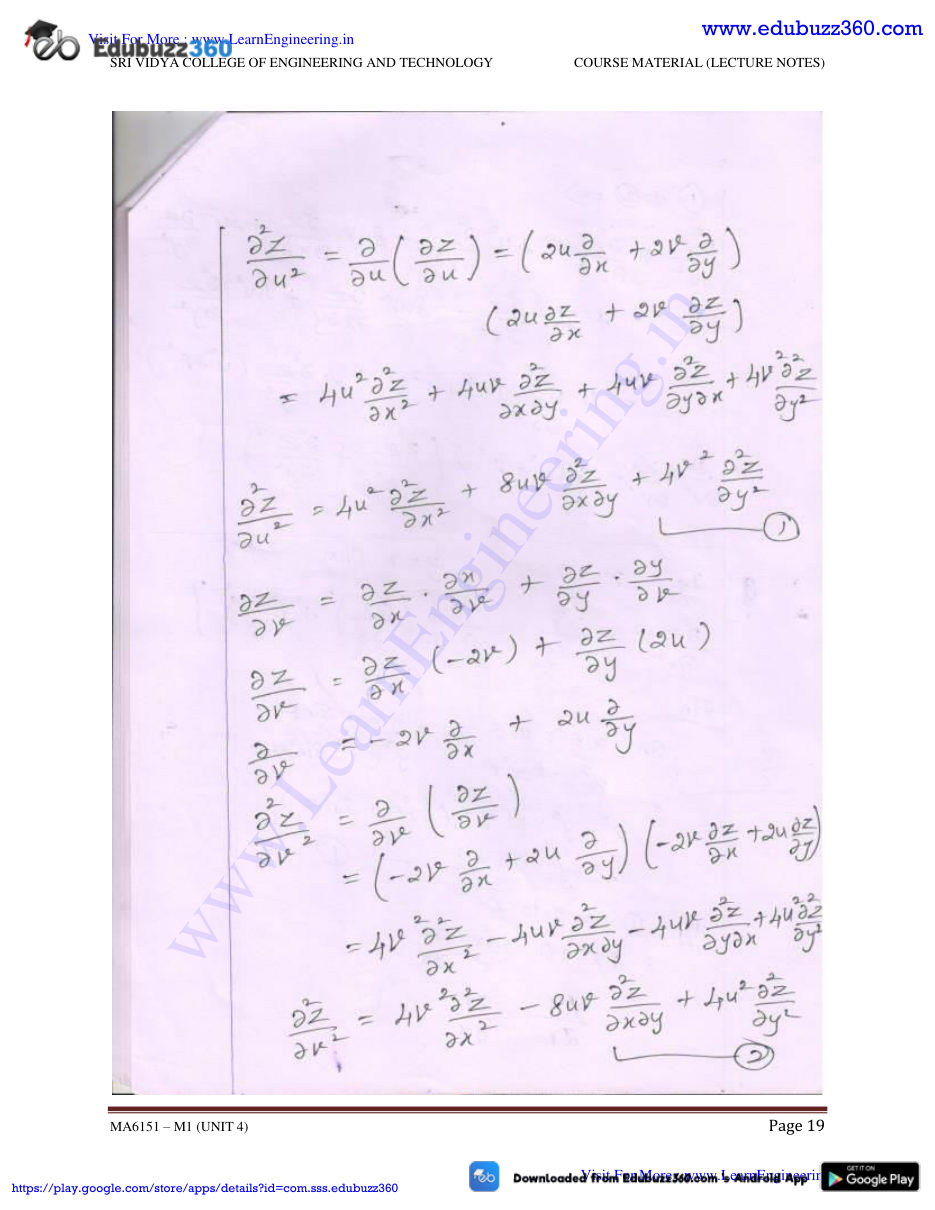 www.edubuzz360.com
Visit For More : www.LearnEngineering.in
Edubuzz360
SRI VIDYA COLLEGE OF ENGINEERING AND TECHNOLOGY COURSE MATERIAL (LECTURE NOTES)
∂²z/∂u² = ∂/∂u (∂z/∂u) = (2u ∂/∂x + 2v ∂/∂y)
(2u ∂z/∂x + 2v ∂z/∂y)
= 4u² ∂²z/∂x² + 4uv ∂²z/∂x∂y + 4uv ∂²z/∂y∂x + 4v² ∂²z/∂y²
∂²z/∂u² = 4u² ∂²z/∂x² + 8uv ∂²z/∂x∂y + 4v² ∂²z/∂y²
①
∂z/∂v = ∂z/∂x . ∂x/∂v + ∂z/∂y . ∂y/∂v
∂z/∂v = ∂z/∂x (-2v) + ∂z/∂y (2u)
∂/∂v = -2v ∂/∂x + 2u ∂/∂y
∂²z/∂v² = ∂/∂v (∂z/∂v)
= (-2v ∂/∂x + 2u ∂/∂y) (-2v ∂z/∂x + 2u ∂z/∂y)
= 4v² ∂²z/∂x² - 4uv ∂²z/∂x∂y - 4uv ∂²z/∂y∂x + 4u² ∂²z/∂y²
∂²z/∂v² = 4v² ∂²z/∂x² - 8uv ∂²z/∂x∂y + 4u² ∂²z/∂y²
②
www.LearnEngineering.in
MA6151 – M1 (UNIT 4) Page 19
Visit For More : www.LearnEngineerin
https://play.google.com/store/apps/details?id=com.sss.edubuzz360
Downloaded from EduBuzz360.com 's Android App
GET IT ON
Google Play